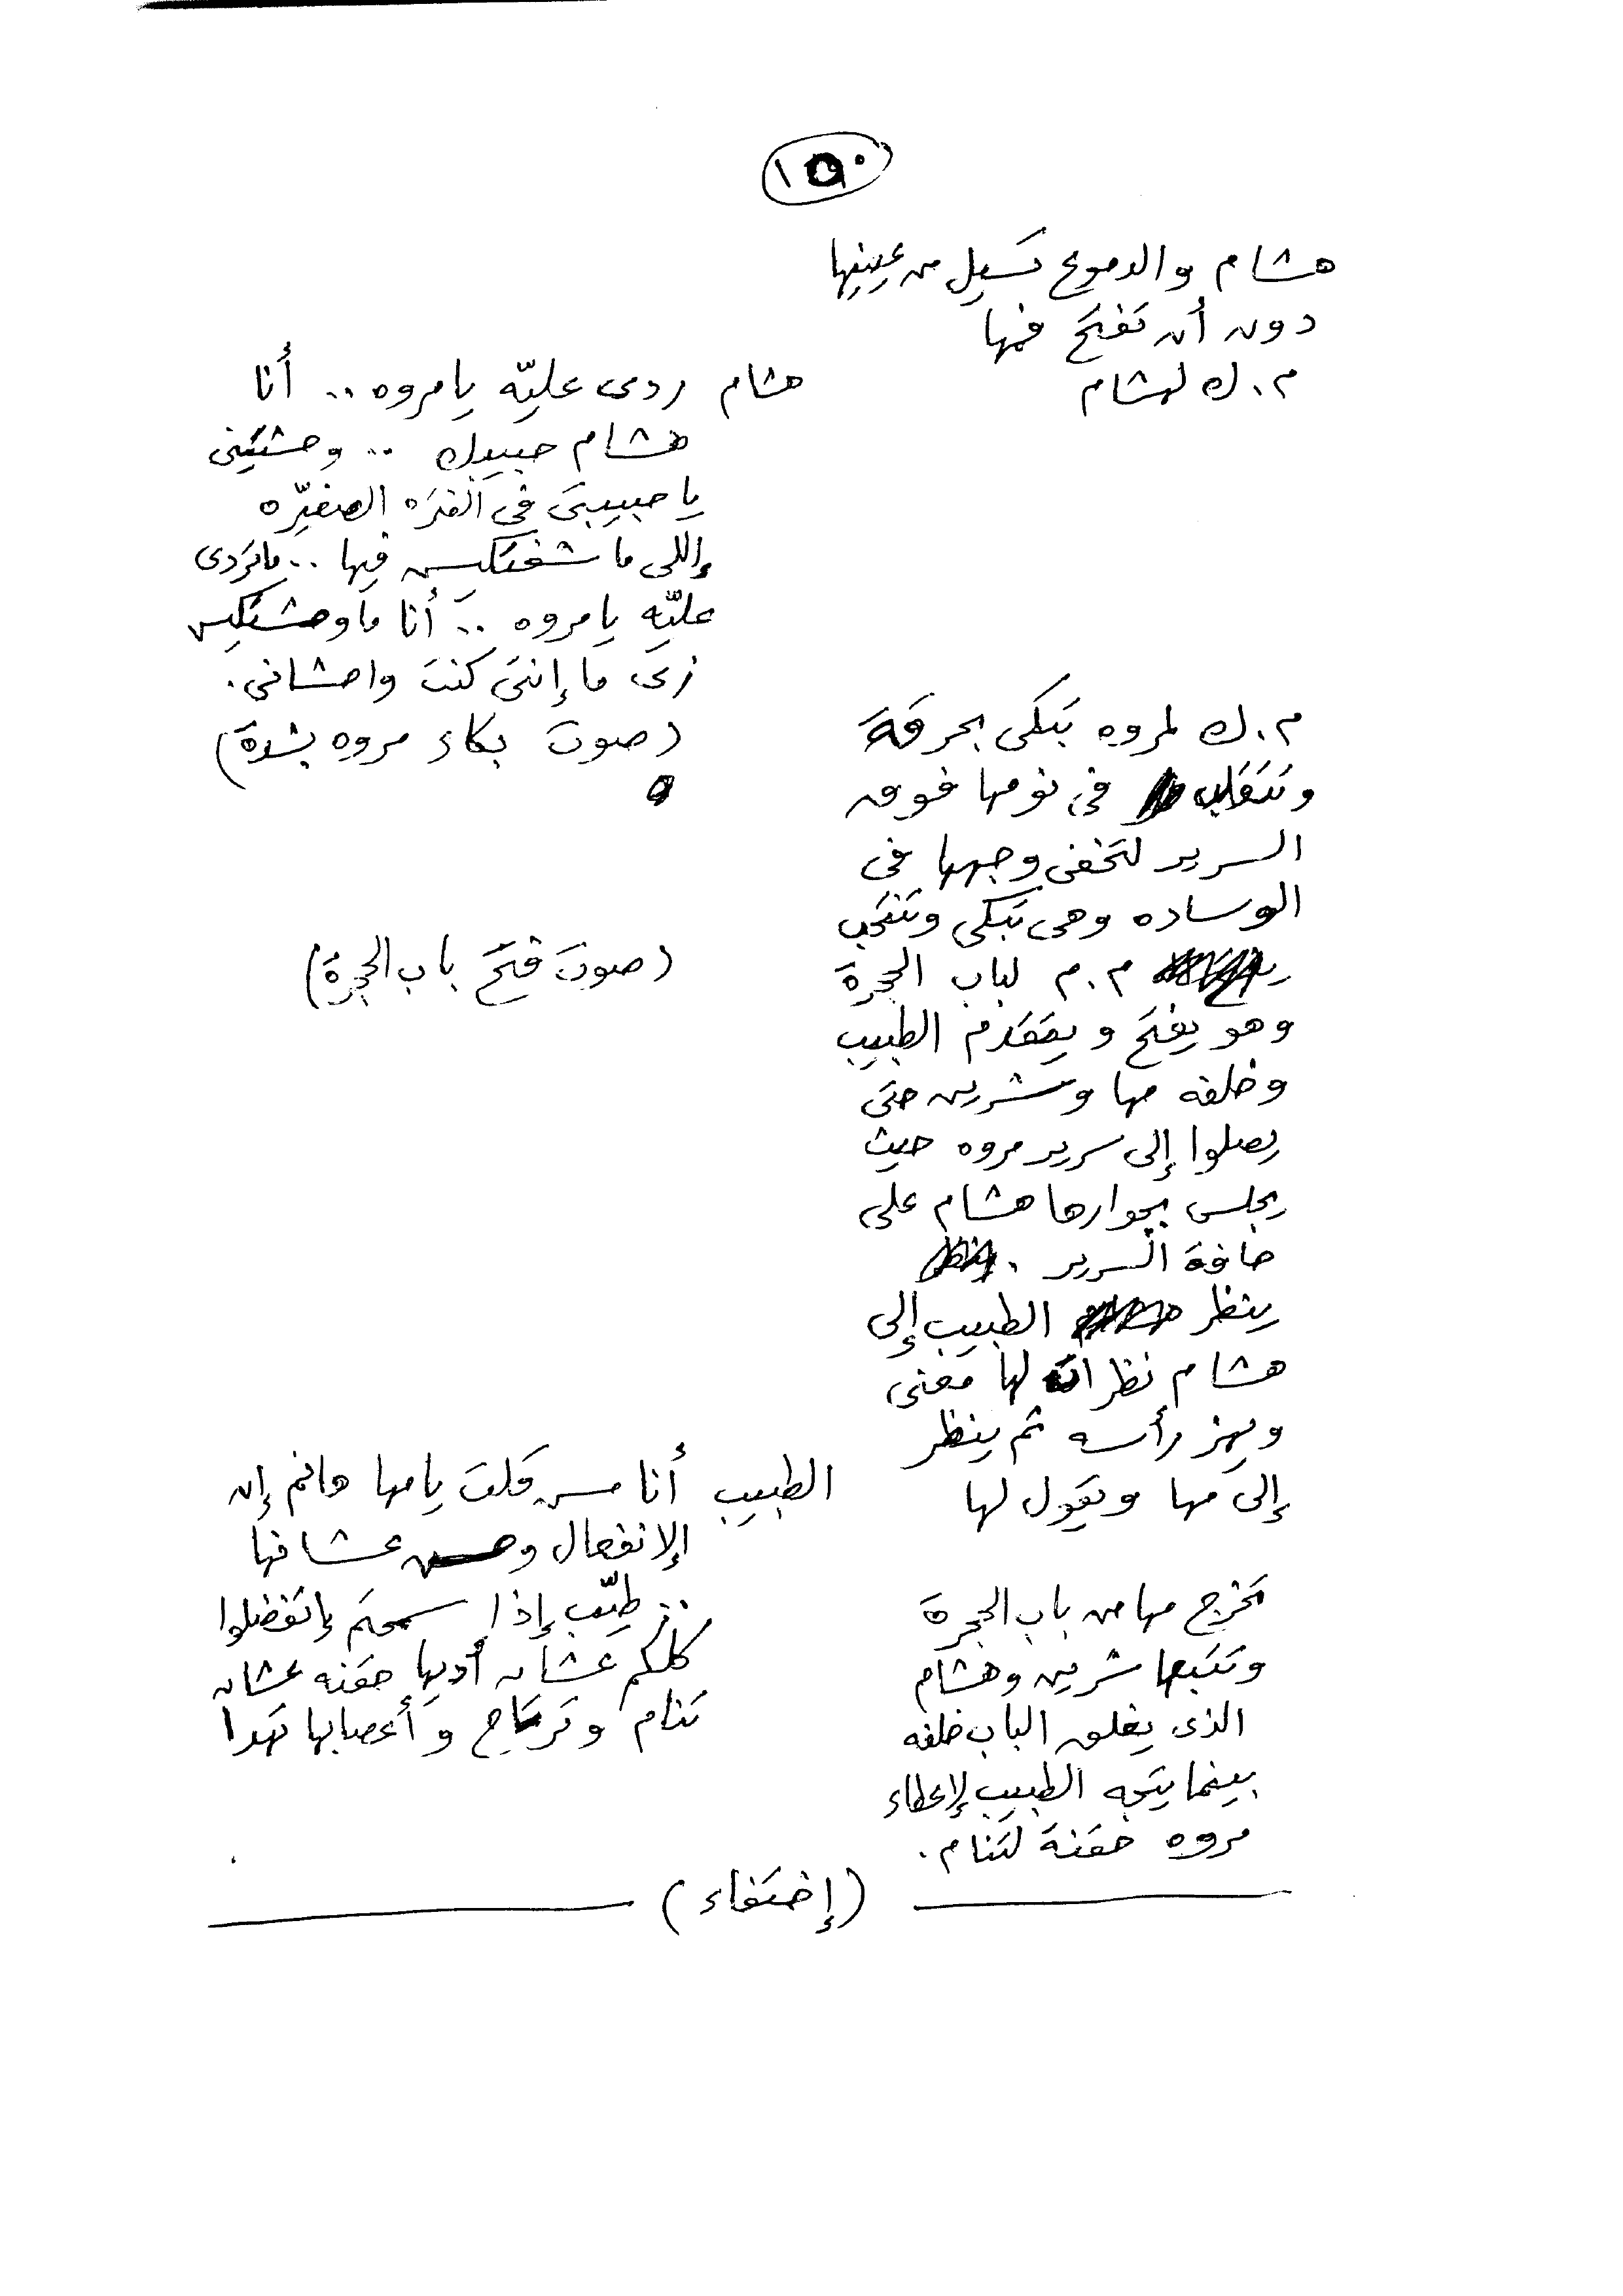 ١٥٠
هشام والدموع تسيل من عينيها
دون أن تفتح فمها
م.ك لهشام
هشام ردى عليّه يا مروه .. أنا
هشام حبيبك .. وحشتينى
يا حبيبتى فى الفتره الصغيّره
إللى ما شفتكيش فيها .. ما تردى
عليّه يا مروه .. أنا ما وحشتكيش
زى ما إنتى كنت واحشانى.
م.ك لمروه تبكى بحرقة
(صوت بكاء مروه بشدة)
وتتقلب فى نومها فوق
السرير لتخفى وجهها فى
الوساده وهى تبكى وتنتحب
م.م لباب الحجرة
(صوت فتح باب الحجرة)
وهو يفتح ويتقدم الطبيب
وخلفه مها وشرين حتى
يصلوا إلى سرير مروه حيث
يجلس بجوارها هشام على
حافة السرير .
ينظر الطبيب إلى
هشام نظرات لها معنى
ويهز رأسه ثم ينظر
إلى مها ويقول لها
الطبيب أنا مش قلت يا مها هانم إن
الإنفعال وحش عشانها
.. طيّب إذا سمحتم إتفضلوا
كلكم عشان أديها حقنه عشان
تنام وترتاح وأعصابها تهدا
تخرج مها من باب الحجرة
وتتبعها شرين وهشام
الذى يغلق الباب خلفه
بينما يتجه الطبيب لإعطاء
مروه حقنة لتنام.
(إختفاء)